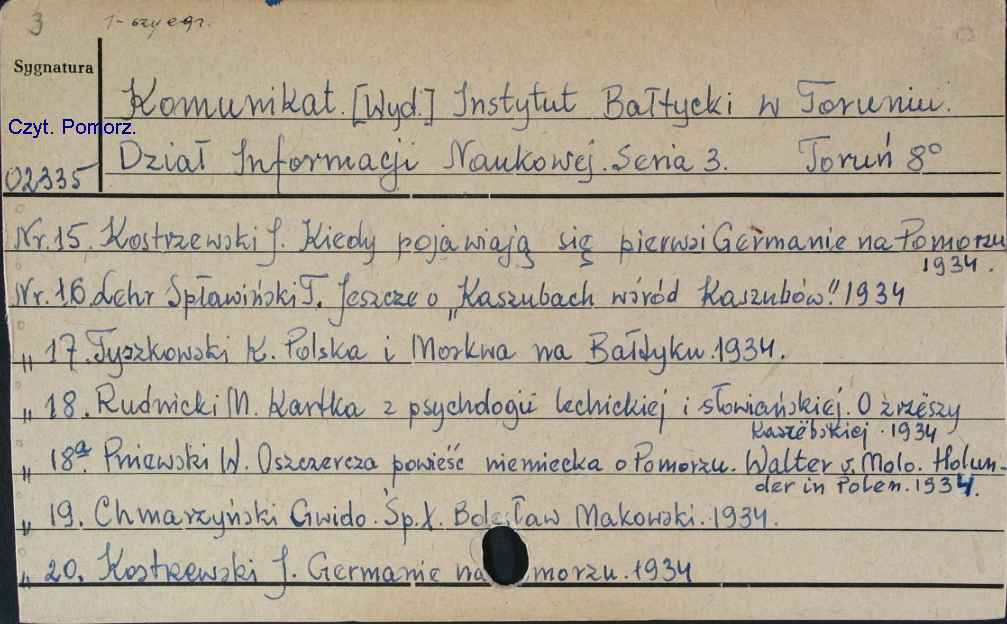 3 1-szy egz.
Sygnatura
Komunikat. [Wyd.] Instytut Bałtycki w Toruniu.
Czyt. Pomorz.
Dział Informacji Naukowej. Seria 3. Toruń 8°
02335
Nr. 15. Kostrzewski J. Kiedy pojawiają się pierwsi Germanie na Pomorzu
1934.
Nr. 16. Lehr Spławiński T. Jeszcze o „Kaszubach wśród Kaszubów." 1934
„ 17. Tyszkowski K. Polska i Moskwa na Bałtyku. 1934.
„ 18. Rudnicki M. Kartka z psychologii lechickiej i słowiańskiej. O zrzëszy
Kaszëbskiej. 1934
„ 18a Pniewski W. Oszczercza powieść niemiecka o Pomorzu. Walter v. Molo. Holun-
der in Polen. 1934.
„ 19. Chmarzyński Gwido. Śp. X. Bolesław Makowski. 1934.
„ 20. Kostrzewski J. Germanie na morzu. 1934